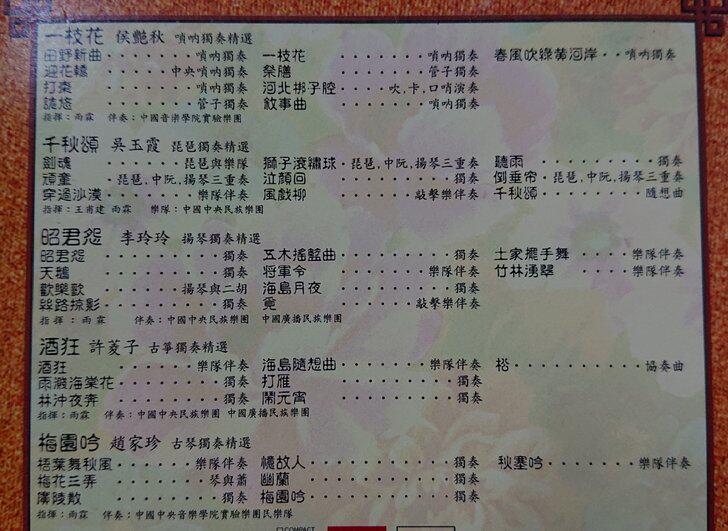 一枝花 侯艷秋 嗩吶獨奏精選
田野新曲・・・・・・・嗩吶獨奏 一枝花・・・・・・・・・・嗩吶獨奏 春風吹綠黃河岸・・嗩吶獨奏
迎花轎・・・・・中央嗩吶獨奏 祭腾・・・・・・・・・・・管子獨奏
打棗・・・・・・・・・嗩吶獨奏 河北梆子腔・・・・吹.卡.口哨演奏
管子獨奏 敘事曲・・・・・・・・・・嗩吶獨奏
指揮：雨霖 伴奏：中國音樂學院實驗樂團
千秋頌 吳玉霞 琵琶獨奏精選
劍魂・・・・・・・・琵琶與樂隊 獅子滾繡球・琵琶,中阮,揚琴三重奏 聽雨・・・・・・・・・・・獨奏
頑童・・琵琶,中阮,揚琴三重奏 泣顏回・・・・・・・・・・・獨奏 倒垂帘・琵琶,中阮,揚琴三重奏
穿過沙漠・・・・・・・樂隊伴奏 風戲柳・・・・・・・・敲擊樂伴奏 千秋頌・・・・・・・・・隨想曲
指揮：王甫建 雨霖 樂隊：中國中央民族樂團
昭君怨 李玲玲 揚琴獨奏精選
昭君怨・・・・・・・・・・獨奏 五木搖籃曲・・・・・・・・獨奏 土家擺手舞・・・・・樂隊伴奏
天鵝・・・・・・・・・・・獨奏 將軍令・・・・・・・・・樂隊伴奏 竹林湧翠・・・・・・樂隊伴奏
歡樂歌・・・・・・揚琴與二胡 海島月夜・・・・・・・・・獨奏
絲路掠影・・・・・・・・・獨奏 覓・・・・・・・・・・敲擊樂伴奏
指揮：雨霖 伴奏：中國中央民族樂團 中國廣播民族樂團
酒狂 許菱子 古箏獨奏精選
酒狂・・・・・・・・・樂隊伴奏 海島隨想曲・・・・・・樂隊伴奏 袷・・・・・・・・・・・協奏曲
雨濺海棠花・・・・・・・・獨奏 打雁・・・・・・・・・・・獨奏
林沖夜奔・・・・・・・・・獨奏 鬧元宵・・・・・・・・・・獨奏
指揮：雨霖 伴奏：中國中央民族樂團 中國廣播民族樂團
梅園吟 趙家珍 古琴獨奏精選
梧葉舞秋風・・・・・・樂隊伴奏 憶故人・・・・・・・・・・獨奏 秋塞吟・・・・・・・樂隊伴奏
梅花三弄・・・・・・・・琴與蕭 幽蘭・・・・・・・・・・・獨奏
廣陵散・・・・・・・・・・獨奏 梅園吟・・・・・・・・・・獨奏
指揮：雨霖 伴奏：中國中央音樂學院實驗樂團民樂隊
COMPACT